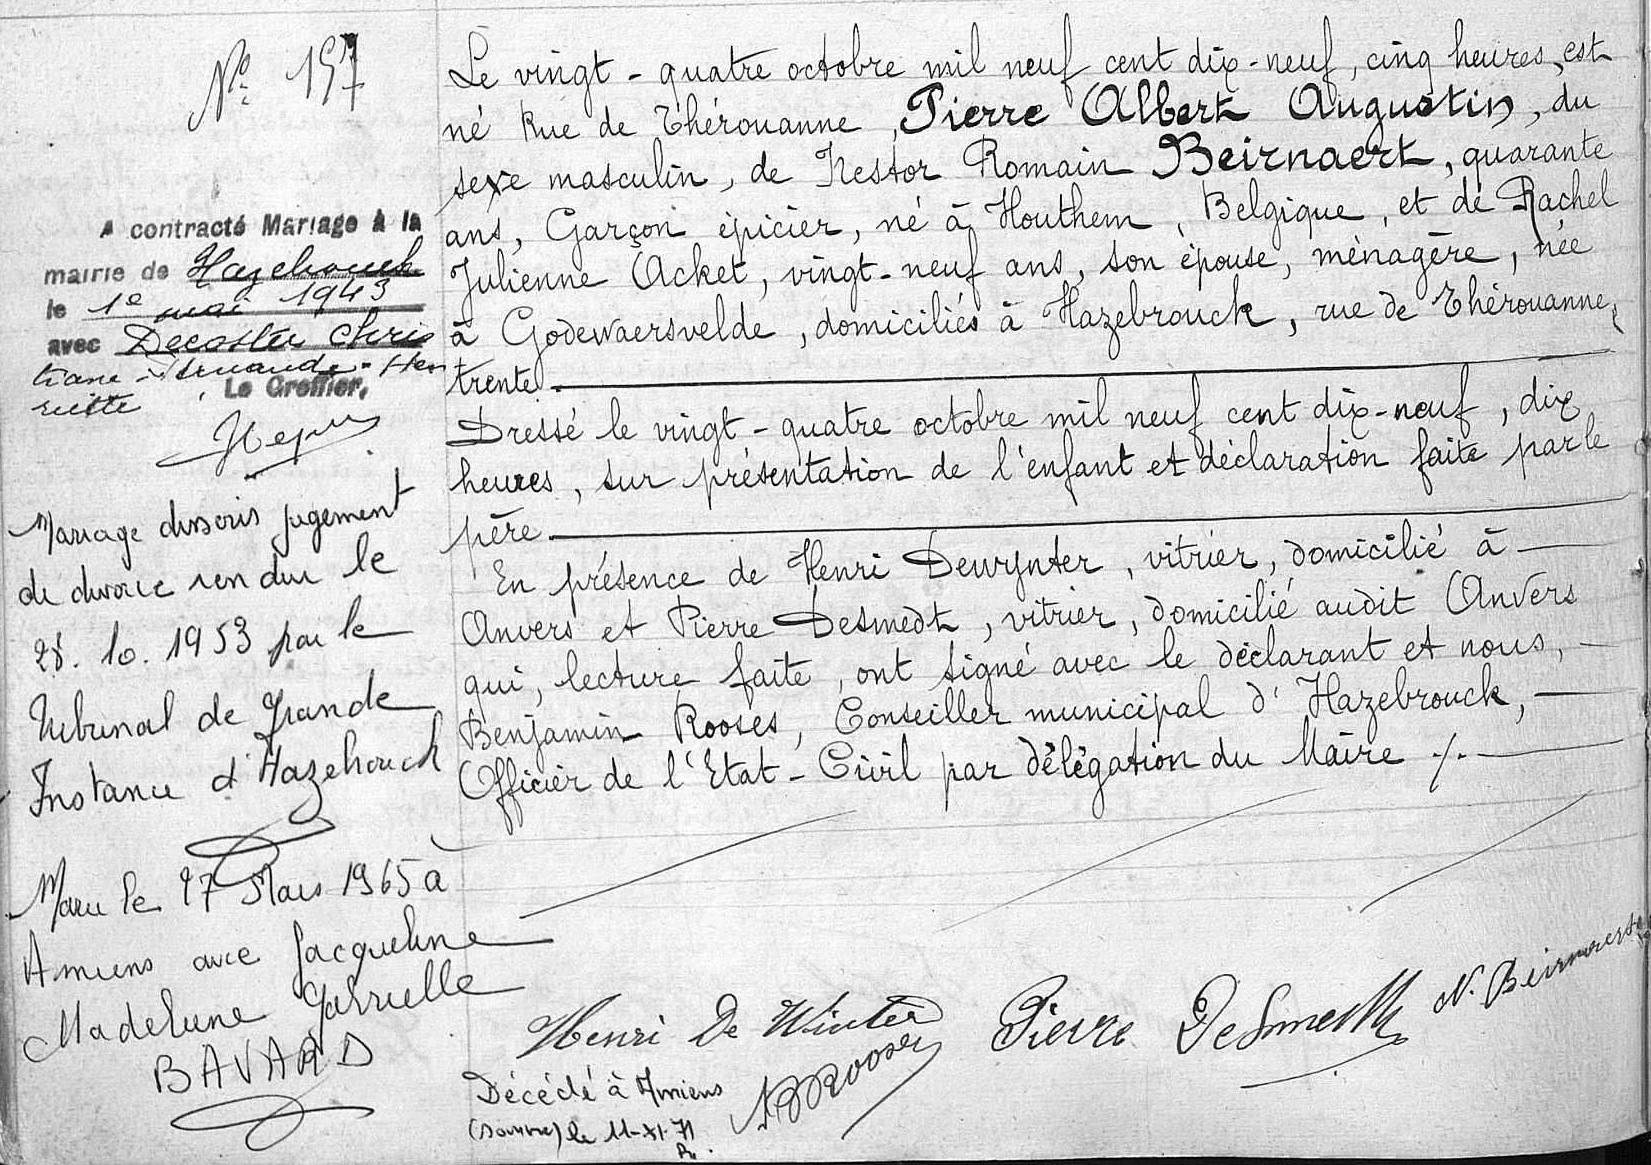 N° 157
A contracté Mariage à la
mairie de Hazebrouck
le 1e mai 1943
avec Decoster Chris
tiane - Fernande - Hen
riette
Le Greffier,
Mariage dissous jugement
de divorce rendu le
28. 10. 1953 par le
Tribunal de Grande
Instance d'Hazebrouck
Marié le 27 Mars 1965 à
Amiens avec Jacqueline
Madeleine Gabrielle
BAVARD
Le vingt - quatre octobre mil neuf cent dix - neuf, cinq heures, est
né Rue de Thérouanne, Pierre Albert Augustin, du
sexe masculin, de Nestor Romain Beirnaert, quarante
ans, Garçon épicier, né à Houthem, Belgique, et de Rachel
Julienne Acket, vingt - neuf ans, son épouse, ménagère, née
à Godewaersvelde, domiciliés à Hazebrouck, rue de Thérouanne,
trente.
Dressé le vingt - quatre octobre mil neuf cent dix - neuf, dix
heures, sur présentation de l'enfant et déclaration faite par le
père
En présence de Henri Dewynter, vitrier, domicilié à
Anvers et Pierre Desmedt, vitrier, domicilié audit Anvers
qui, lecture faite, ont signé avec le déclarant et nous,
Benjamin Rooses, Conseiller municipal d'Hazebrouck,
Officier de l'Etat - Civil par délégation du Maire ./.
Henri De Winter Pierre DeSmedt N. Beirnaert
B Rooses
Décédé à Amiens
(Somme) le 11-XI-71